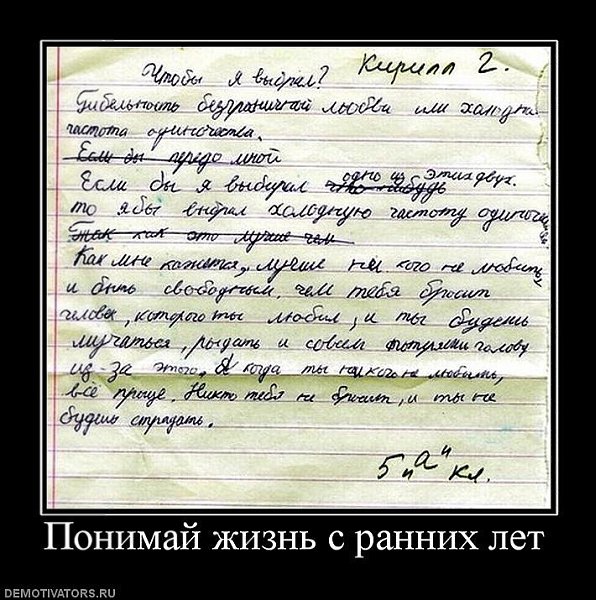 Чтобы я выбрал? Кирилл Г.
Гибельность безграничной любви или холодна
частота одиночества.
Если бы передо мной
Если бы я выбирал что-нибудь одно из этих двух.
то я бы выбрал холодную частоту одиночества
Так как это лучше чем
Как мне кажется, лучше ни кого не любить
и быть свободным, чем тебя бросит
человек, которого ты любил, и ты будешь
мучаться, рыдать и совсем голову
из-за этого. А когда ты ни кого не любишь,
всё проще. Никто тебя не бросит, и ты не
будешь страдать.
5 "а" кл.
Понимай жизнь с ранних лет
DEMOTIVATORS.RU